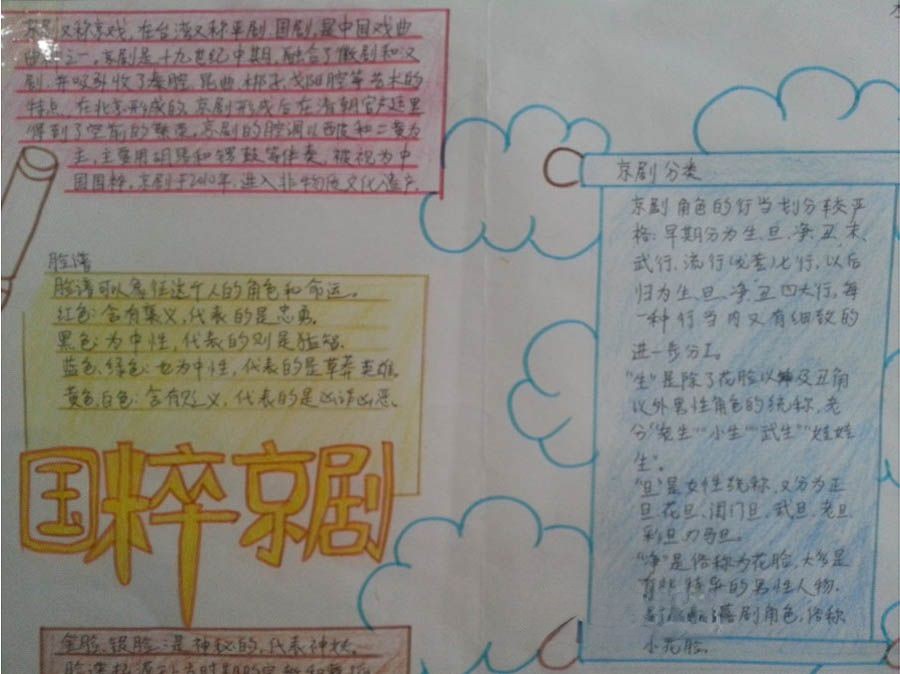 京剧又称京戏，在台湾又称平剧，国剧，是中国戏曲
曲种之一，京剧是十九世纪中期，融合了徽剧和汉
剧，并吸引收了秦腔、昆曲、梆子、弋阳腔等艺术的
特点，在北京形成的。京剧形成后在清朝宫廷里
得到了空前的繁荣，京剧的腔调以西皮和二黄为
主，主要用胡琴和锣鼓等伴奏，被视为中
国国粹，京剧于2010年，进入非物质文化遗产
脸谱
脸谱可以象征这个人的角色和命运。
红色：含有褒义，代表的是忠勇。
黑色：为中性，代表的则是猛智。
蓝色、绿色：也为中性，代表的是草莽英雄。
黄色、白色：含有贬义，代表的是凶诈凶恶。
国粹京剧
金脸、银脸：是神秘的，代表神妖。
京剧分类
京剧角色的行当划分较严
格：早期分为生、旦、净、丑、末、
武行、流行（龙套）七行，以后
归为生、旦、净、丑四大行，每
一种行当内又有细致的
进一步分工。
“生”是除了花脸以及丑角
以外男性角色的统称，老
分“老生”“小生”“武生”“娃娃
生”。
“旦”是女性统称，又分为正
旦、花旦、闺门旦、武旦、老旦
彩旦、刀马旦。
“净”是俗称为花脸，大多是
有特异的男性人物。
喜剧角色，俗称
小花脸。